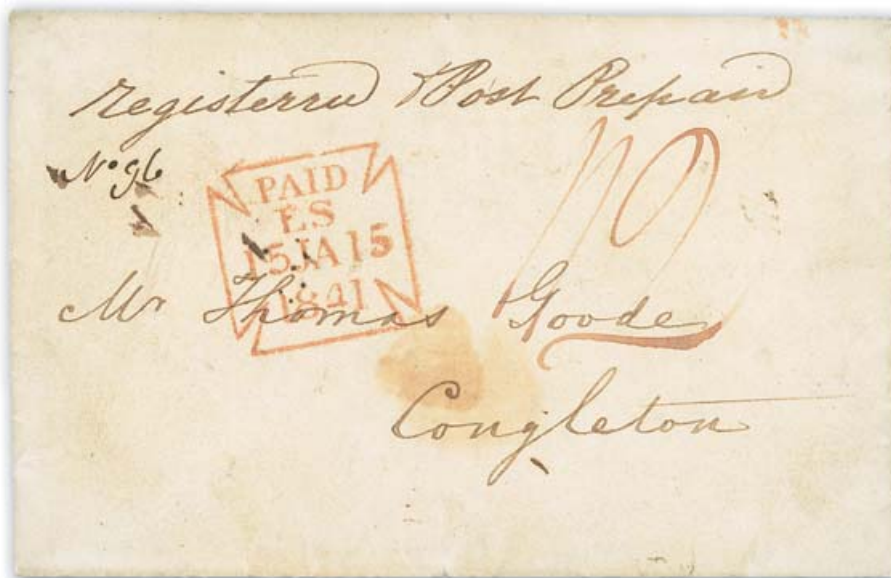 Registerred & Post Prepaid
No 96
PAID
ES
15JA15
1841
Mr Thomas Goode
Congleton